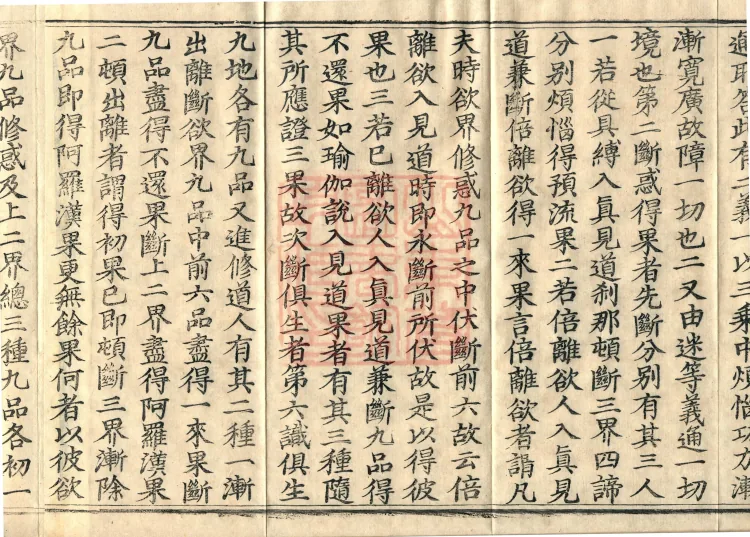 漸寬廣故障一切也二又由迷等義通一切
境也第二斷惑得果者先斷分別有其三人
一若從具縛入眞見道刹那頓斷三界四諦
分別煩惱得預流果二若倍離欲人入眞見
道兼斷倍離欲得一來果言倍離欲者謂凡
夫時欲界修惑九品之中伏斷前六故云倍
離欲入見道時即永斷前所伏故是以得彼
果也三若已離欲人入眞見道兼斷九品得
不還果如瑜伽說入見道果者有其三種隨
其所應證三果故次斷俱生者第六識俱生
九地各有九品又進修道人有其二種一漸
出離斷欲界九品中前六品盡得一來果斷
九品盡得不還果斷上二界盡得阿羅漢果
二頓出離者謂得初果已即頓斷三界漸除
九品即得阿羅漢果更無餘果何者以彼欲
界九品修惑及上二界總三種九品各初一